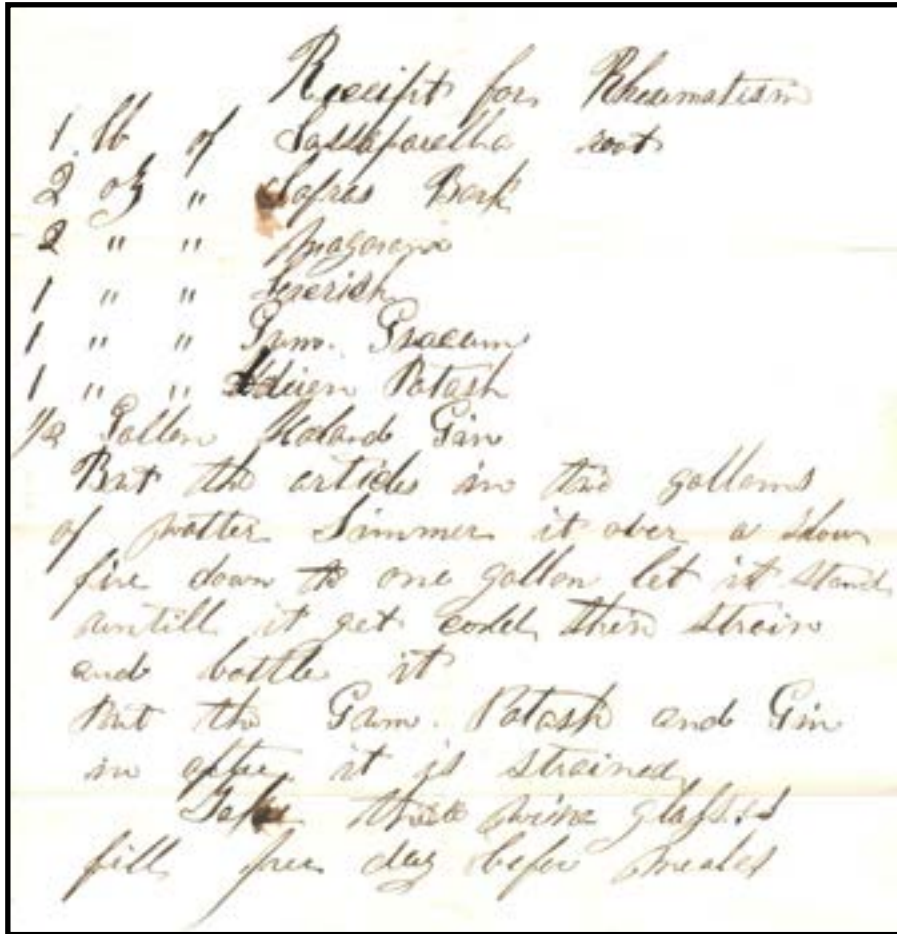 Receipt for Rheumatism
1 lb of Sassaparella root
2 oz " Safras Bark
2 " "
1 " "
1 " " Gum.
1 " " Potash
1/2 Gallon Holand Gin
Put the articles in two gallons
of watter Simmer it over a slow
fire down to one gallon let it stand
auntill it get cold then strain
and bottle it
Put the Gum. Potash and Gin
in after it is strained
Take three wine glasses
fill per day before meales